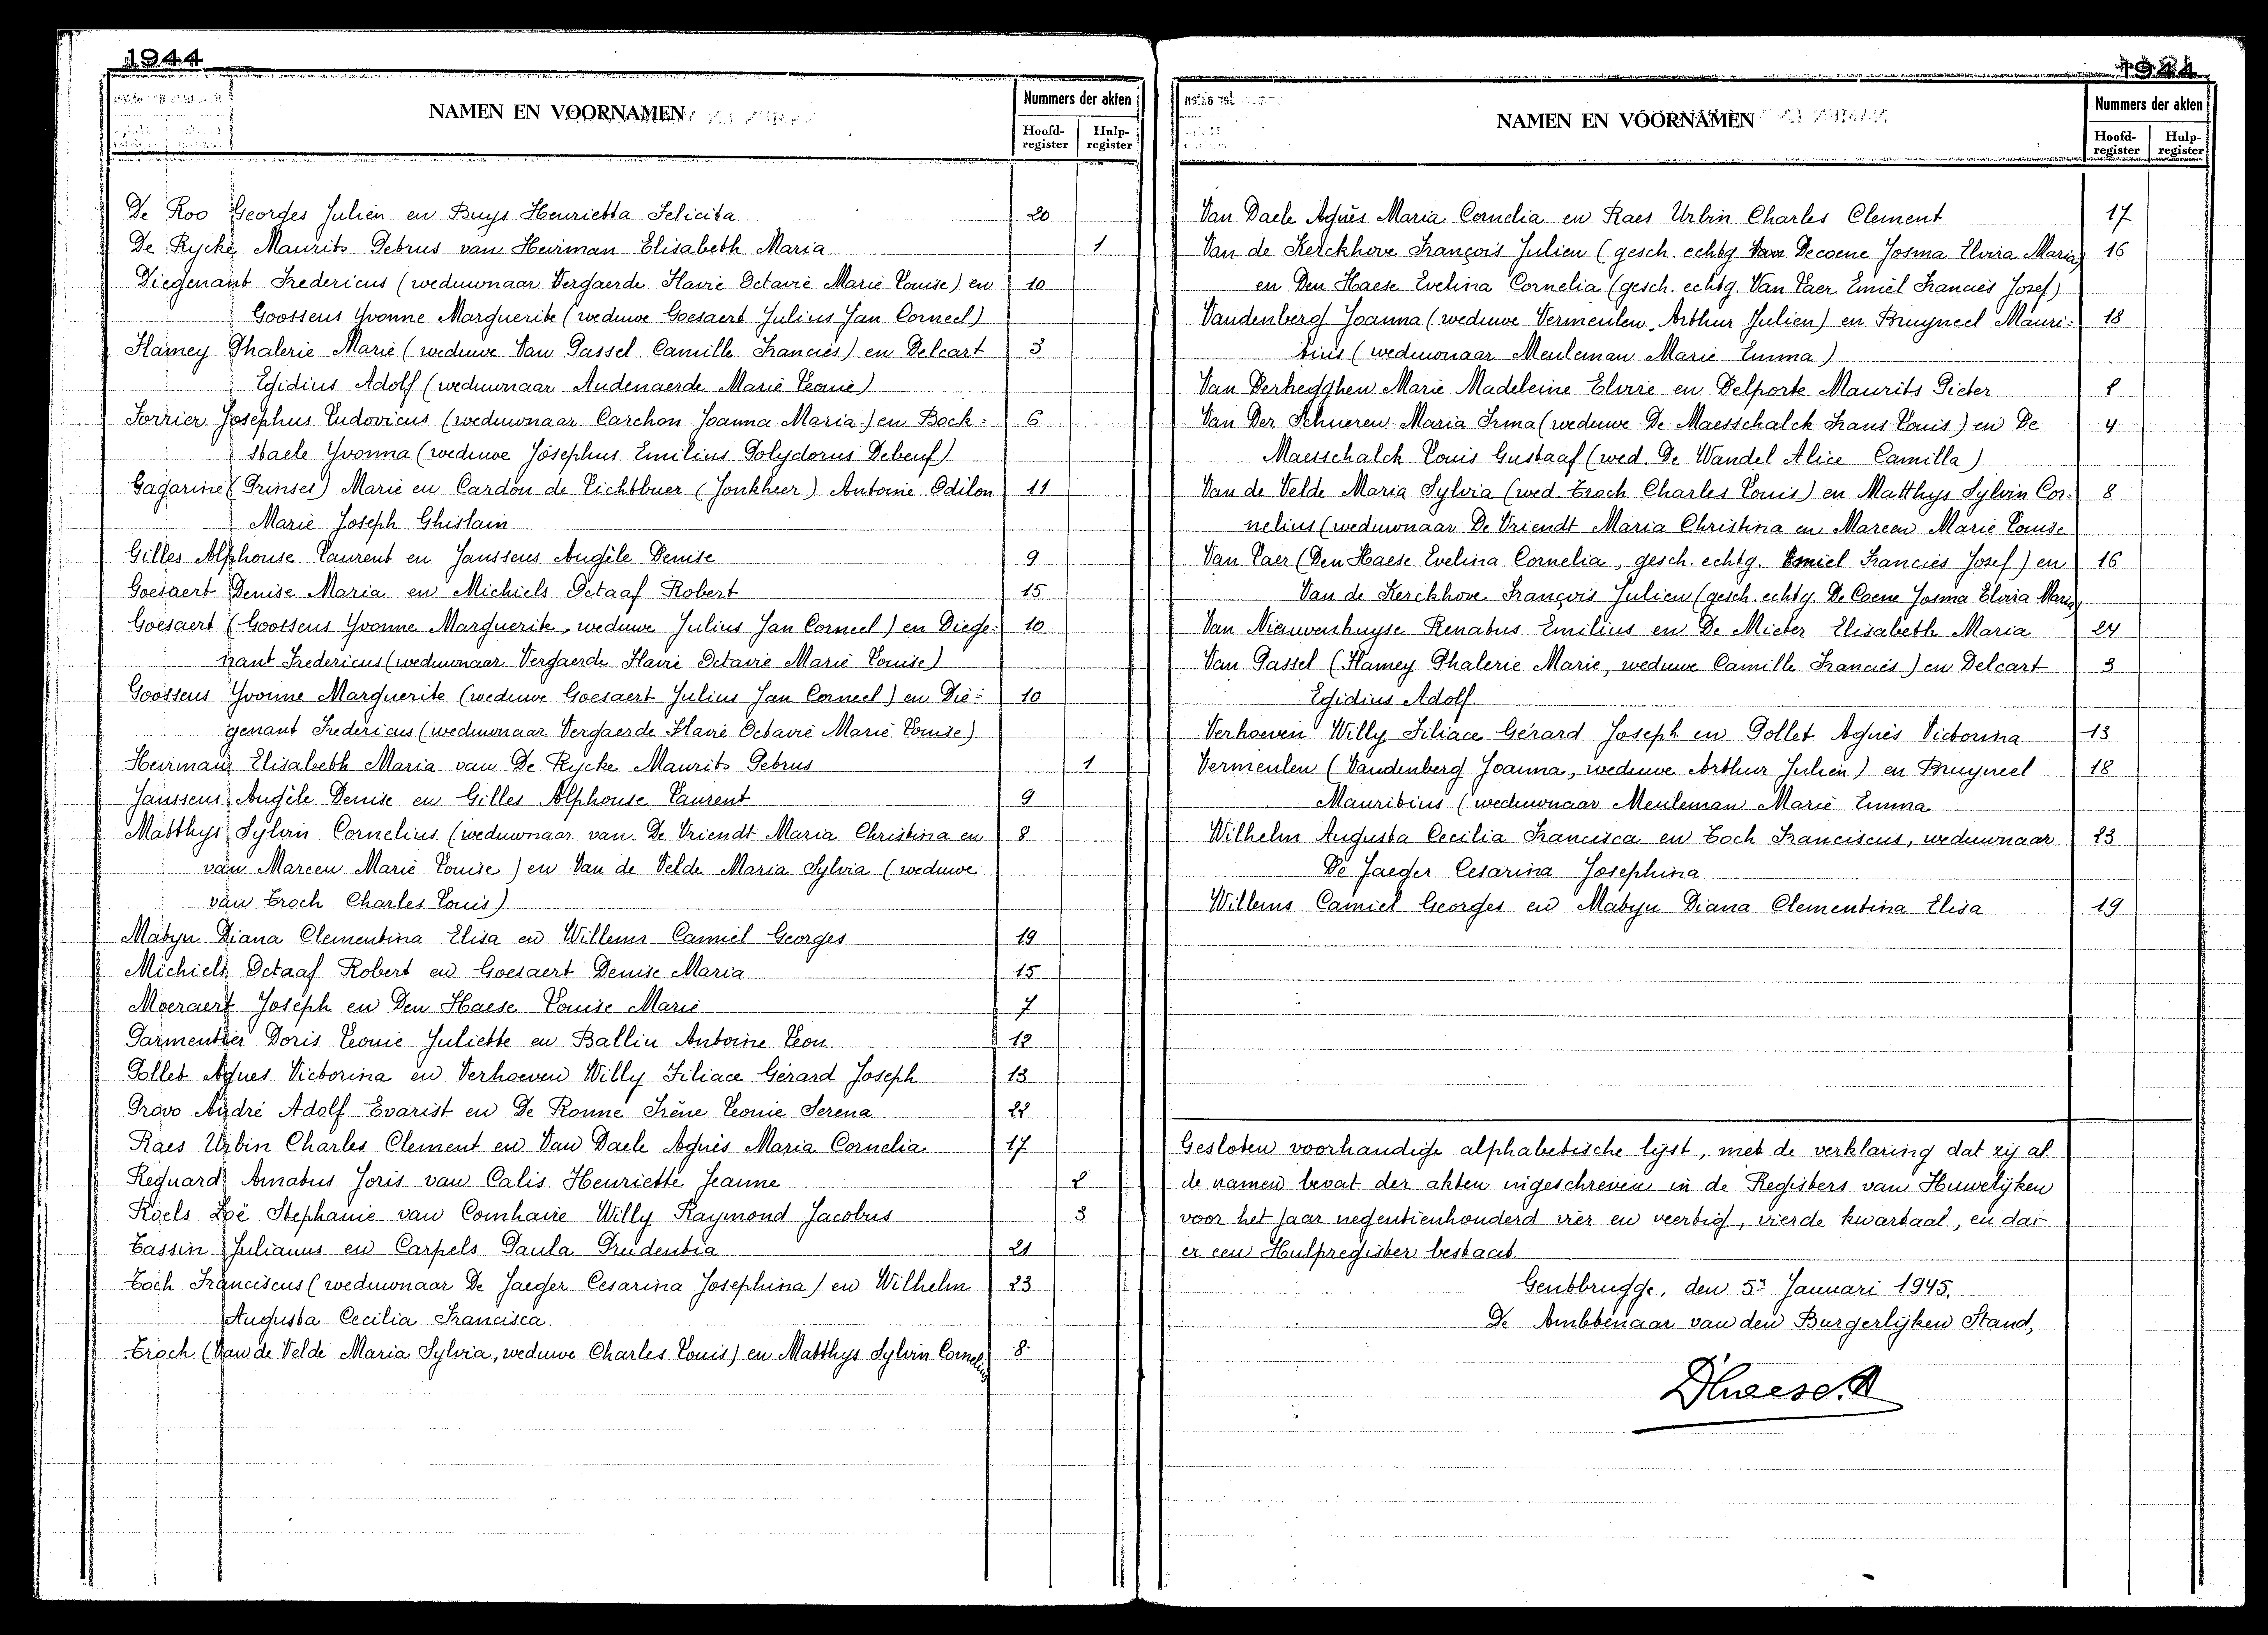 1944
NAMEN EN VOORNAMEN
Nummers der akten
Hoofd-register
Hulp-register
De Roo Georges Julien en Buys Henrietta Felicita 20
De Rycke Maurits Petrus van Heirman Elisabeth Maria 1
Diegenant Fredericus (weduwnaar Vergaerde Flavie Octavie Marie Louise) en 10
Goossens Yvonne Marguerite (weduwe Goesaert Julius Jan Corneel)
Flamey Phalerie Marie (weduwe Van Gassel Camille Franciës) en Delcart 3
Egidius Adolf (weduwnaar Audenaerde Marie Leonie)
Forrier Josephus Ludovicus (weduwnaar Carchon Joanna Maria) en Bock: 6
staele Yvonna (weduwe Josephus Emilius Polydorus Debeuf)
Gagarine (Prinses) Marie en Cardon de Lichtbuer (Jonkheer) Antoine Odilon 11
Marie Joseph Ghislain
Gilles Alphonse Laurent en Janssens Angèle Denise 9
Goesaert Denise Maria en Michiels Octaaf Robert 15
Goesaert (Goossens Yvonne Marguerite, weduwe Julius Jan Corneel) en Diege: 10
nant Fredericus (weduwnaar Vergaerde Flavie Octavie Marie Louise)
Goossens Yvonne Marguerite (weduwe Goesaert Julius Jan Corneel) en Die: 10
genant Fredericus (weduwnaar Vergaerde Flavie Octavie Marie Louise)
Heirman Elisabeth Maria van De Rycke Maurits Petrus 1
Janssens Angèle Denise en Gilles Alphonse Laurent 9
Matthys Sylvin Cornelius (weduwnaar van De Vriendt Maria Christina en 8
van Mareen Marie Louise) en Van de Velde Maria Sylvia (weduwe
van Troch Charles Louis)
Matyn Diana Clementina Elisa en Willems Camiel Georges 19
Michiels Octaaf Robert en Goesaert Denise Maria 15
Moeraert Joseph en Den Haese Louise Marie 7
Parmentier Doris Leonie Juliette en Ballin Antoine Leon 12
Pollet Agnes Victorina en Verhoeven Willy Filiace Gérard Joseph 13
Provo André Adolf Evarist en De Ronne Irène Leonie Serena 22
Raes Urbin Charles Clement en Van Daele Agnès Maria Cornelia 17
Regnard Amatus Joris van Calis Henriette Jeanne 2
Roels Zoë Stephanie van Comhaire Willy Raymond Jacobus 3
Tassin Julianus en Carpels Paula Prudentia 21
Toch Franciscus (weduwnaar De Jaeger Cesarina Josephina) en Wilhelm 23
Augusta Cecilia Francisca.
Troch (Van de Velde Maria Sylvia, weduwe Charles Louis) en Matthys Sylvin Cornelius 8
1944
NAMEN EN VOORNAMEN
Nummers der akten
Hoofd-register
Hulp-register
Van Daele Agnès Maria Cornelia en Raes Urbin Charles Clement 17
Van de Kerckhove François Julien (gesch. echtg. Decoene Josma Elvira Maria) 16
en Den Haese Evelina Cornelia (gesch. echtg. Van Laer Emiël Franciës Josef)
Vandenberg Joanna (weduwe Vermeulen Arthur Julien) en Bruyneel Mauri: 18
tius (weduwnaar Meuleman Marie Emma)
Van Derhegghen Marie Madeleine Elvire en Delporte Maurits Pieter 2
Van Der Schueren Maria Irma (weduwe De Maesschalck Frans Louis) en De 4
Maesschalck Louis Gustaaf (wed. De Wandel Alice Camilla)
Van de Velde Maria Sylvia (wed. Troch Charles Louis) en Matthys Sylvin Cor: 8
nelius (weduwnaar De Vriendt Maria Christina en Mareen Marie Louise
Van Laer (Den Haese Evelina Cornelia, gesch. echtg. Emiel Franciës Josef) en 16
Van de Kerckhove François Julien (gesch. echtg. De Coene Josma Elvira Maria)
Van Nieuwenhuyse Renatus Emilius en De Mieter Elisabeth Maria 24
Van Gassel (Flamey Phalerie Marie, weduwe Camille Franciës) en Delcart 3
Egidius Adolf.
Verhoeven Willy Filiace Gérard Joseph en Pollet Agnès Victorina 13
Vermeulen (Vandenberg Joanna, weduwe Arthur Julien) en Bruyneel 18
Mauritius (weduwnaar Meuleman Marie Emma
Wilhelm Augusta Cecilia Francisca en Toch Franciscus, weduwnaar 23
De Jaeger Cesarina Josephina
Willems Camiel Georges en Matyn Diana Clementina Elisa 19
Gesloten voorhandige alphabetische lijst, met de verklaring dat zij al
de namen bevat der akten ingeschreven in de Registers van Huwelijken
voor het jaar negentienhonderd vier en veertig, vierde kwartaal, en dat
er een Hulpregister bestaat.
Gentbrugge, den 5n Januari 1945.
De Ambtenaar van den Burgerlijken Stand,